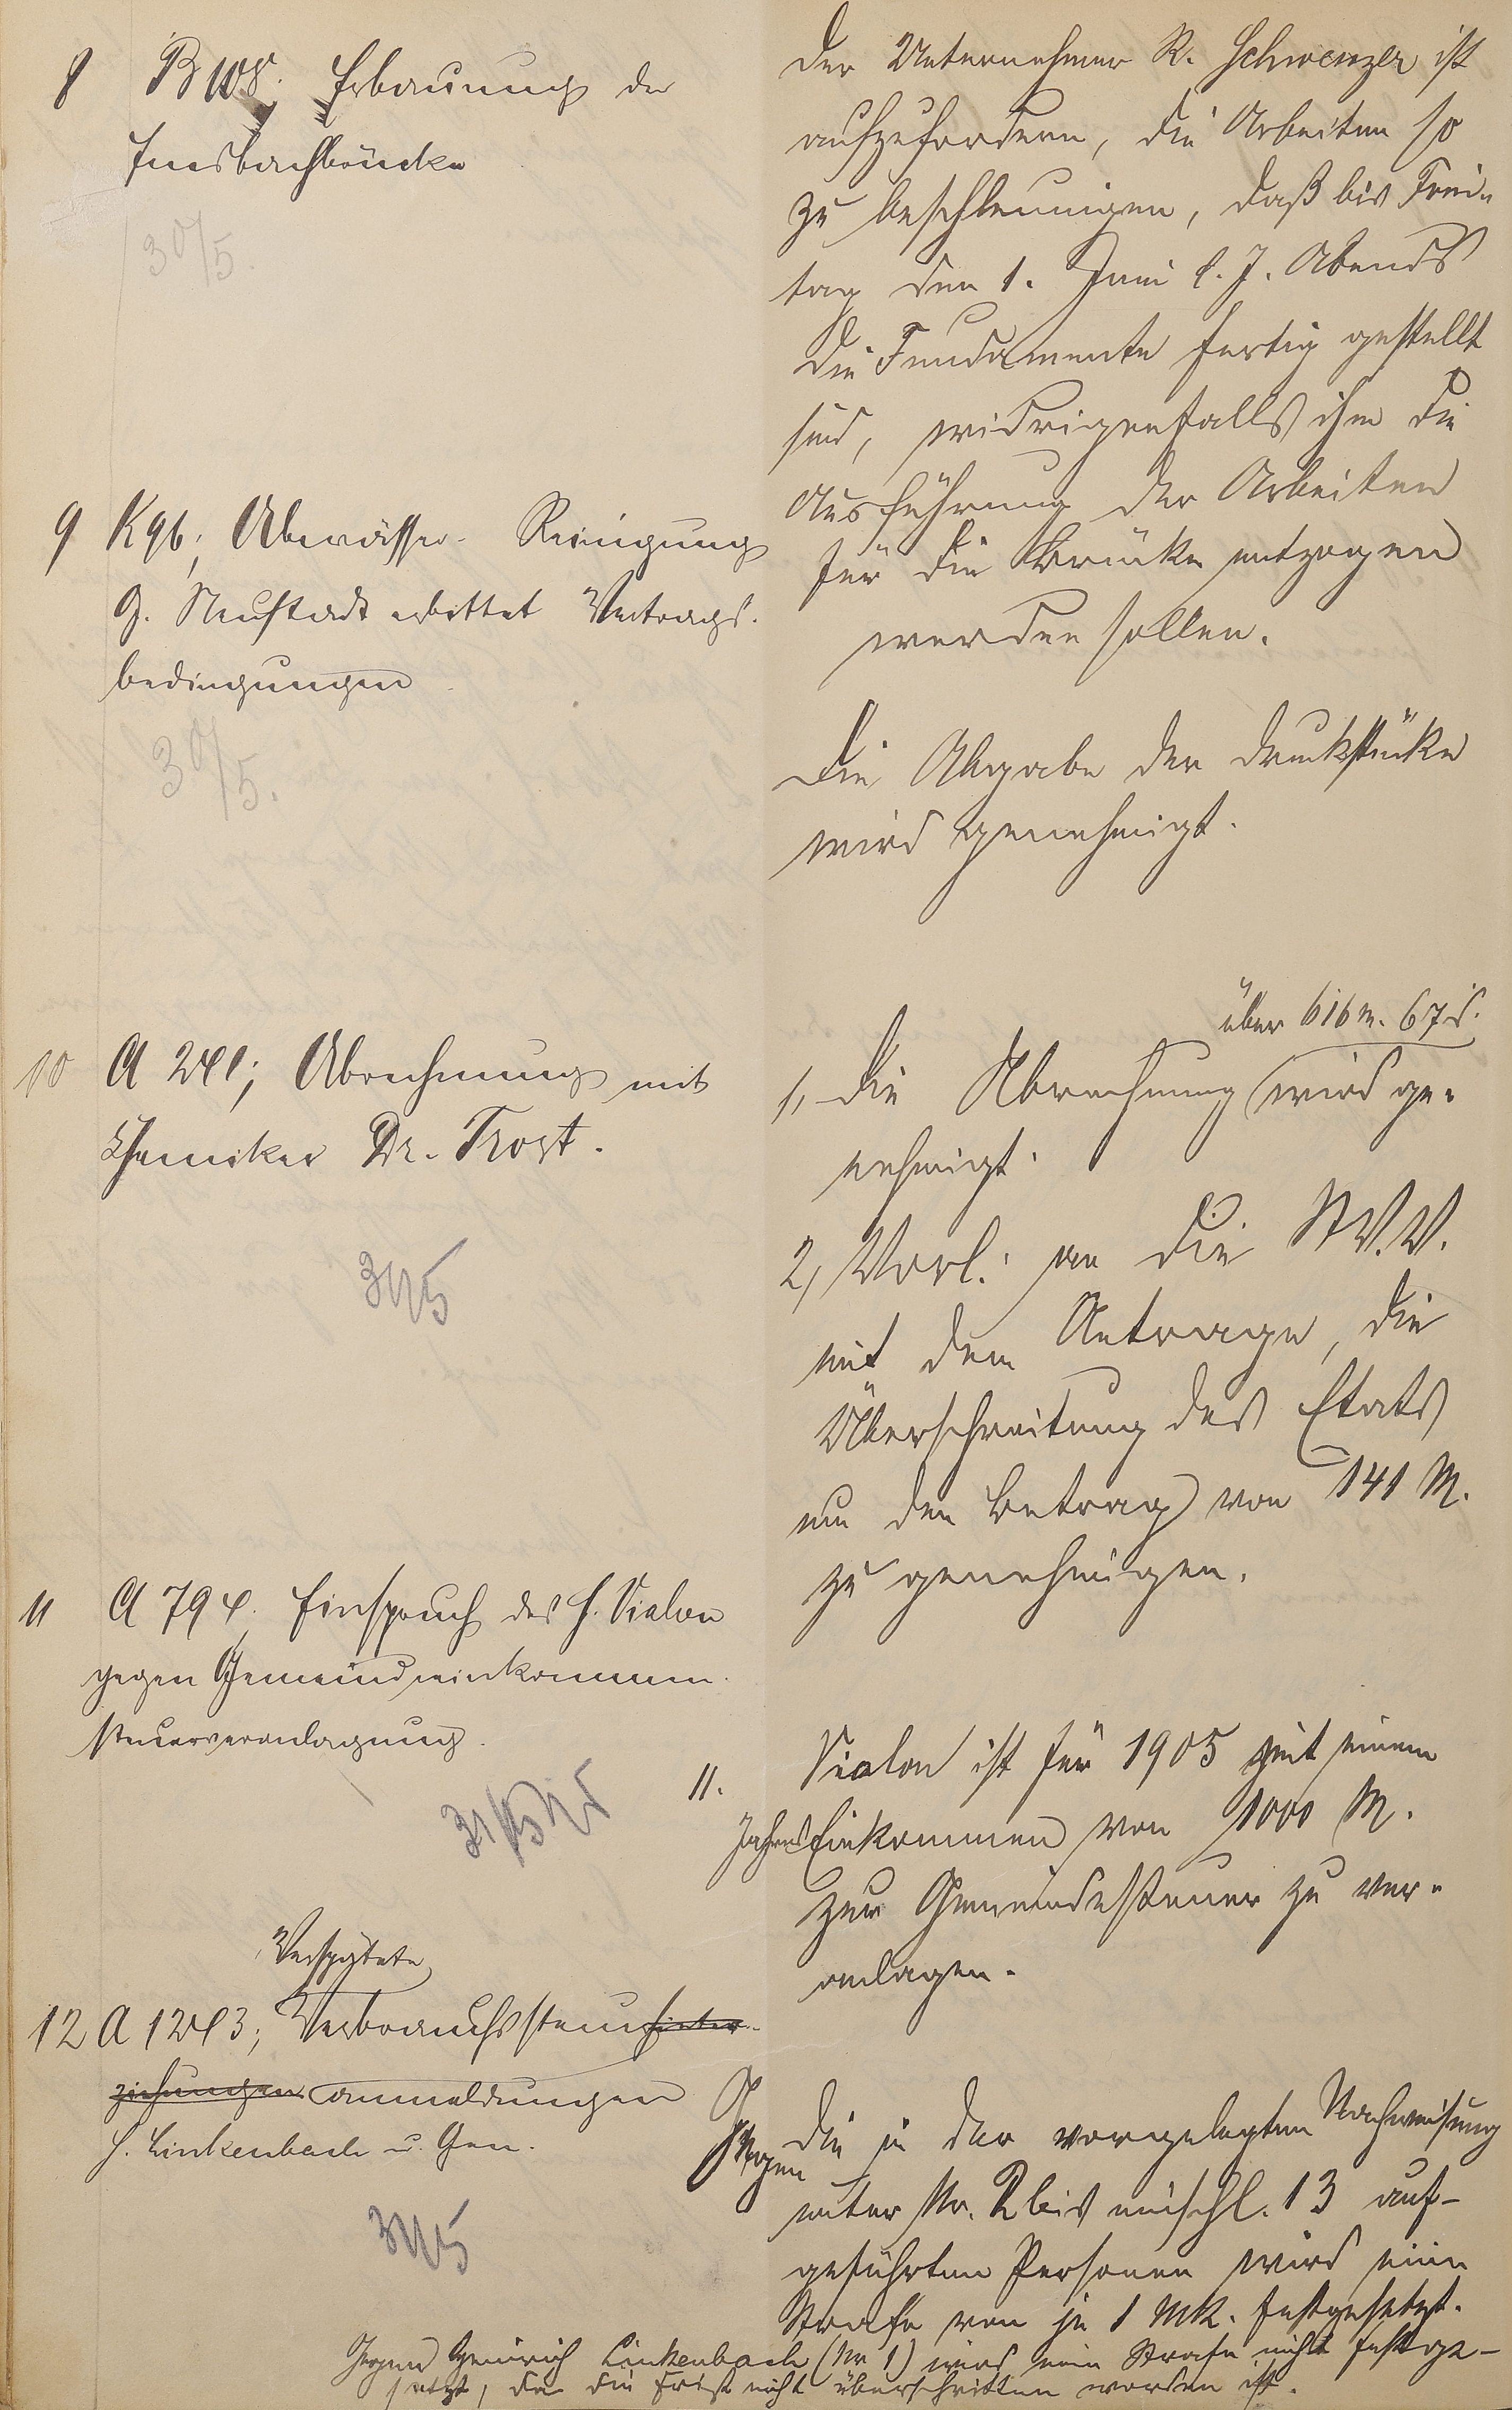 8 B 108; Erbauung der
Insbachbrücke
30/5.
Der Unternehmer R. Schwenzer ist
aufzufordern, die Arbeiten so
zu beschleunigen, daß bis Frei-
tag den 1. Juni l. J. Abends
die Fundamente fertig gestellt
sind, widrigenfalls ihm die
Ausführung der Arbeiten
für die Brücke entzogen
werden sollen.
9 K 96; Abwässer-Reinigung
G. Neustadt erbittet Vertrags-
bedingungen
30/5.
Die Abgabe der Druckstücke
wird genehmigt.
10 A 241; Abrechnung mit
Chemiker Dr. Trost.
31/5
über 616 M. 67 d.
1, Die Abrechnung wird ge-
nehmigt.
2, Vorl. an die St.V.V.
mit dem Antrage, die
Überschreitung des Etats
um den Betrag von 141 M.
zu genehmigen.
11 A 794. Einspruch des H. Vialon
gegen Gemeindeeinkommen-
steuerveranlagung.
31/5
11. Vialon ist für 1905 mit einem
Jahres Einkommen von 1000 M.
zur Gemeindesteuer zu ver-
anlagen.
Verspätete
12 A 1243; Verbrauchssteuerhinter-
ziehungen anmeldungen
H. Linkenbach u. Gen.
31/5
Gegen die in der vorgelegten Nachweisung
unter Nr. 2 bis einschl. 13 auf-
geführten Personen wird eine
Strafe von je 1 Mk. festgesetzt.
Gegen Heinrich Linkenbach (Nr 1) wird eine Strafe nicht festge-
setzt, da die Frist nicht überschritten worden ist.